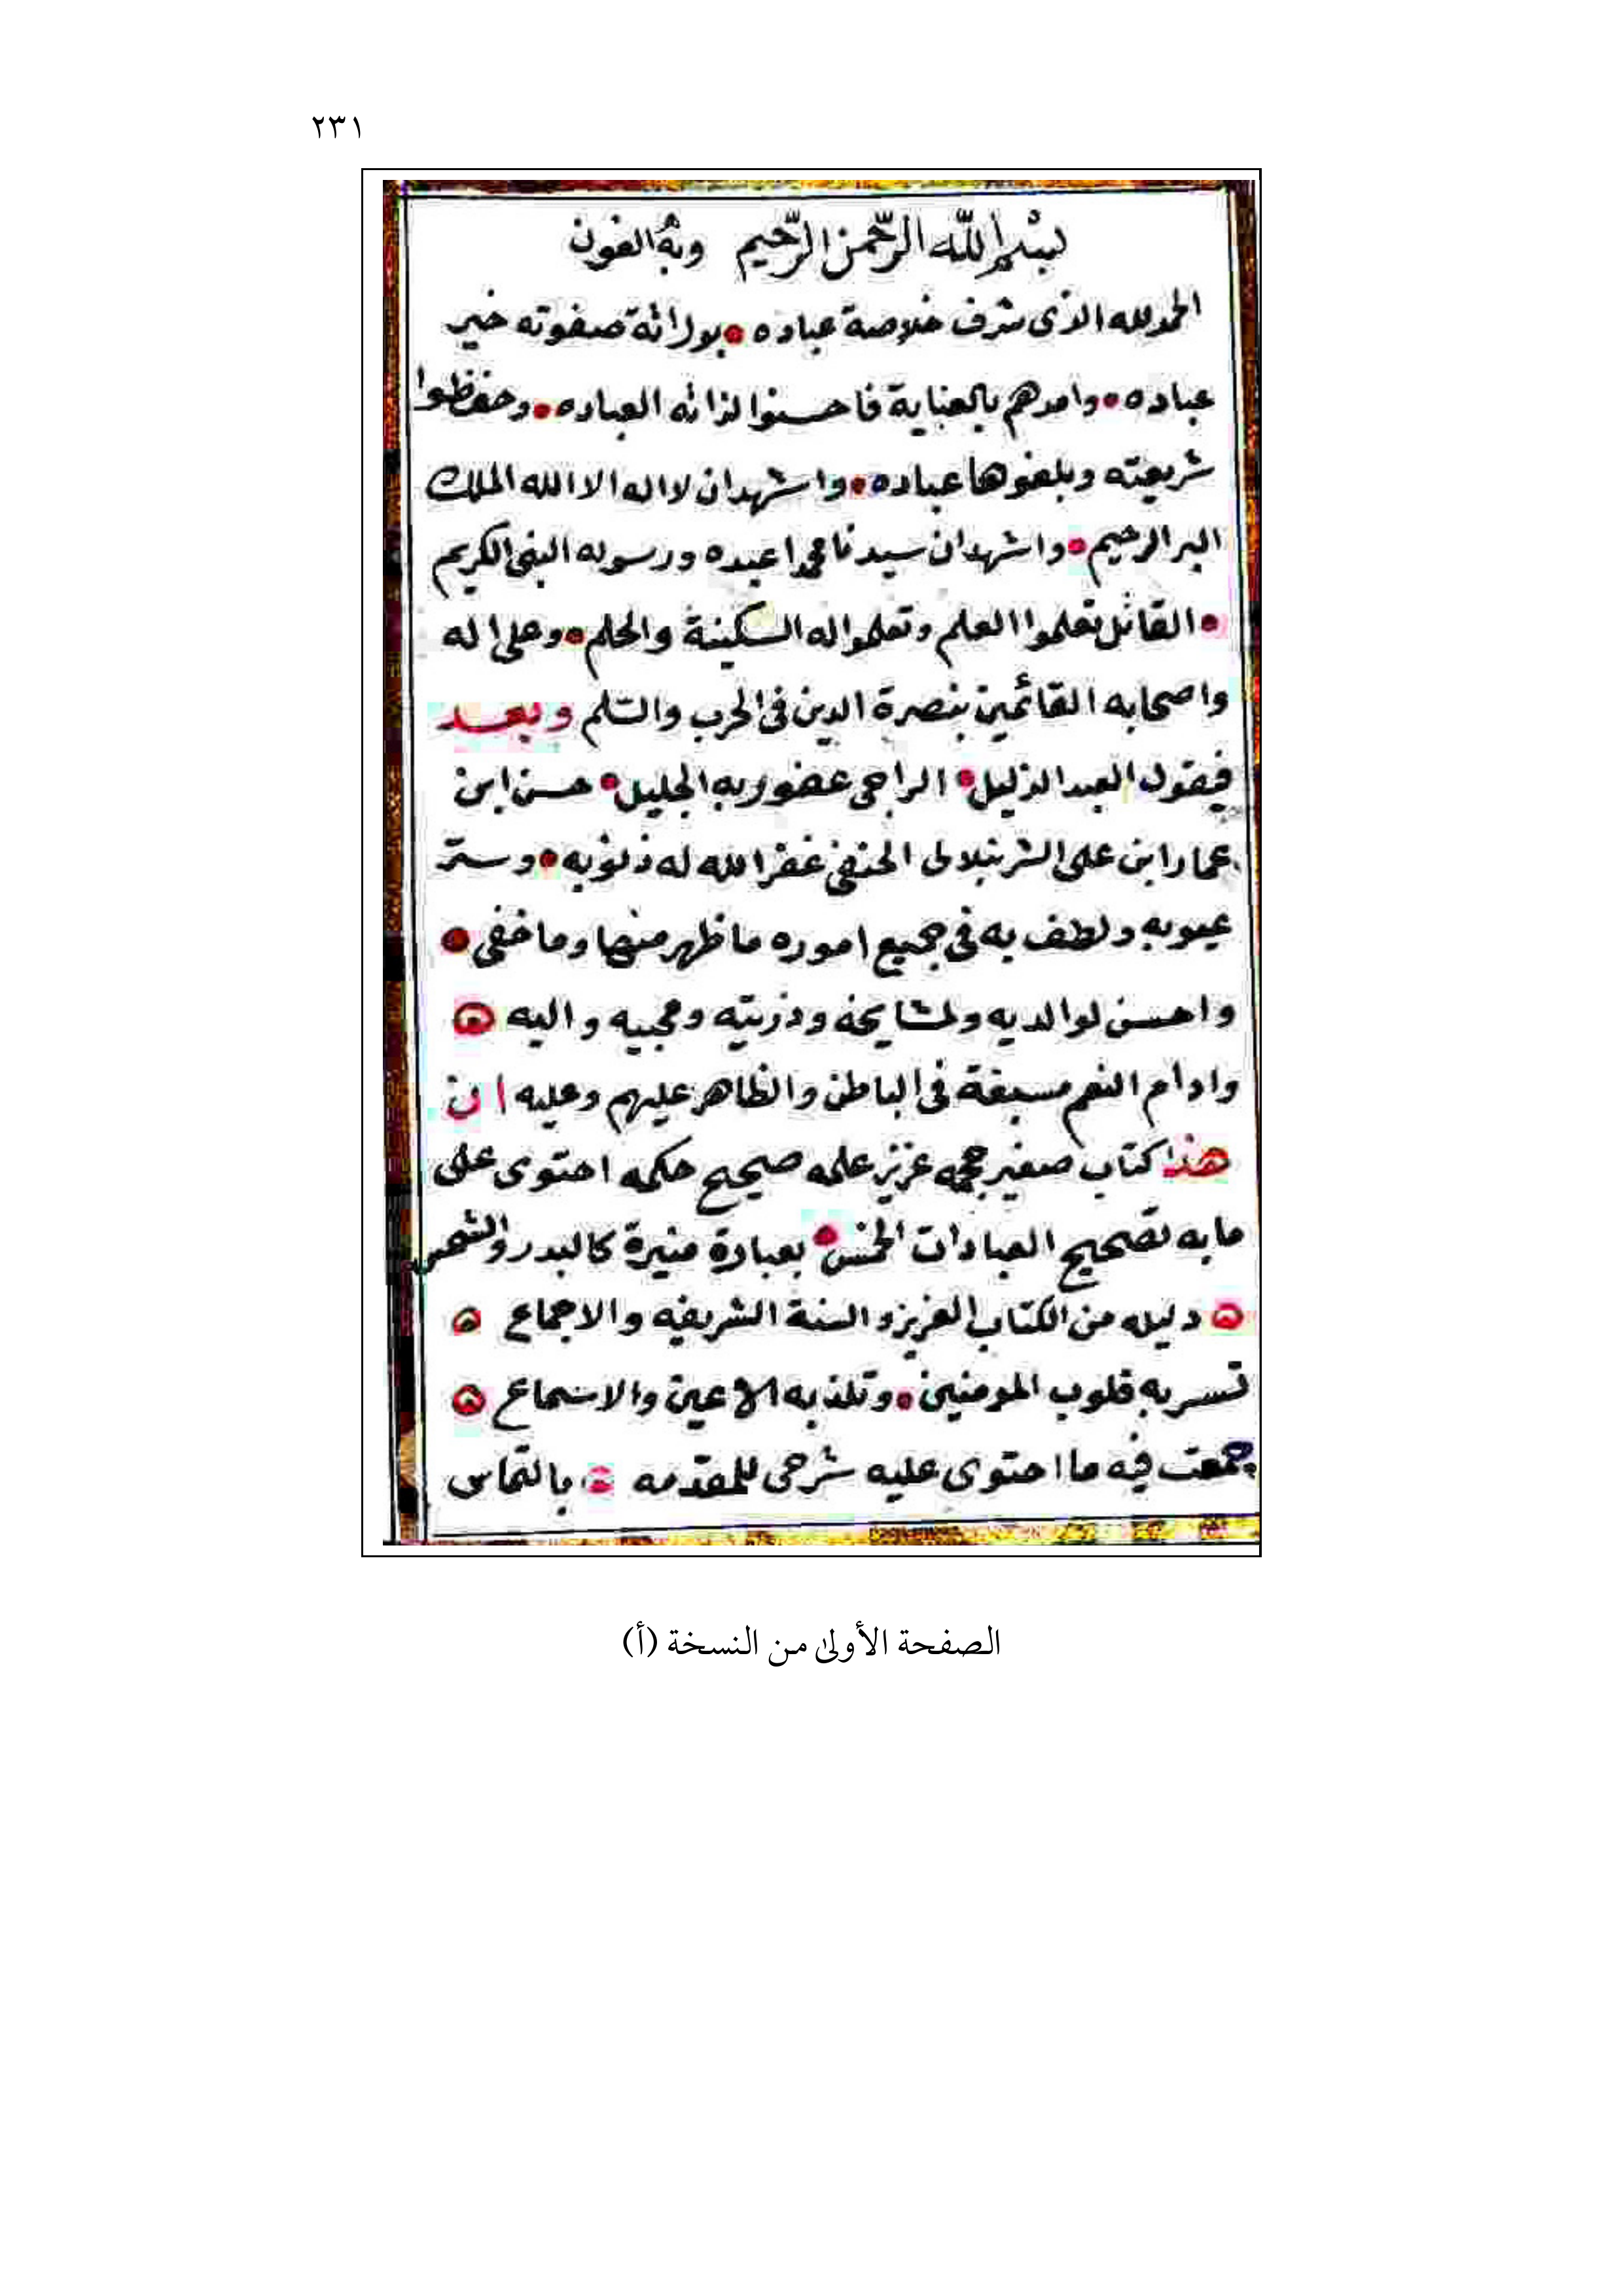 ٢٣١
بسم الله الرحمن الرحيم وبه العون
الحمد لله الذى شرف خلاصة عباده بوراثة صفوته خير
عباده وامدهم بالعناية فاحسنوا لذاته العباده وحفظوا
شريعته وبلغوها عباده واشهد ان لا اله الا الله الملك
البر الرحيم واشهد ان سيدنا محمدا عبده ورسوله النبى الكريم
القائل تعلموا العلم وتعلموا له السكينة والحلم وعلى اله
واصحابه القائمين بنصرة الدين فى الحرب والسّلم وبعد
فيقول العبد الذليل الراجى عفو ربه الجليل حسن ابن
عمار ابن على الشرنبلالى الحنفى غفر الله له ذنوبه وستر
عيوبه ولطف به فى جميع اموره ما ظهر منها وما خفى
واحسن لوالديه ولمشايخه وذريته ومحبيه واليه
وادام النعم مسبغة فى الباطن والظاهر عليهم وعليه ان
هذا كتاب صغير حجمه عزيز علمه صحيح حكمه احتوى على
ما به تصحيح العبادات الخمس بعبارة منيرة كالبدر والشمس
دليله من الكتاب العزيز والسنة الشريفه والاجماع
تسر به قلوب المومنين وتلذ به الاعين والاسماع
جمعت فيه ما احتوى عليه شرحى للمقدمه بالتماس
الصفحة الأولىٰ من النسخة (أ)